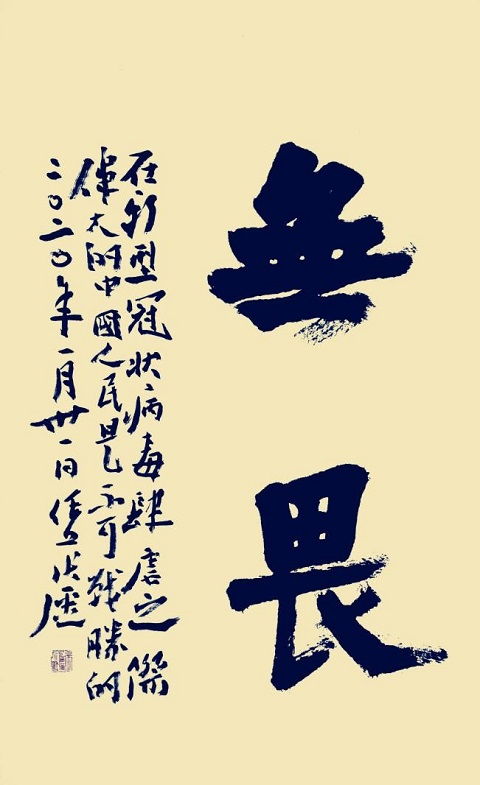 無畏
在新型冠状病毒肆虐之際
偉大的中國人民是不可战勝的
二〇二〇年一月卅一日